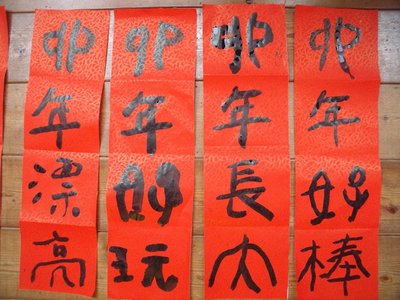 卯年好棒
卯年長大
卯年好玩
卯年漂亮